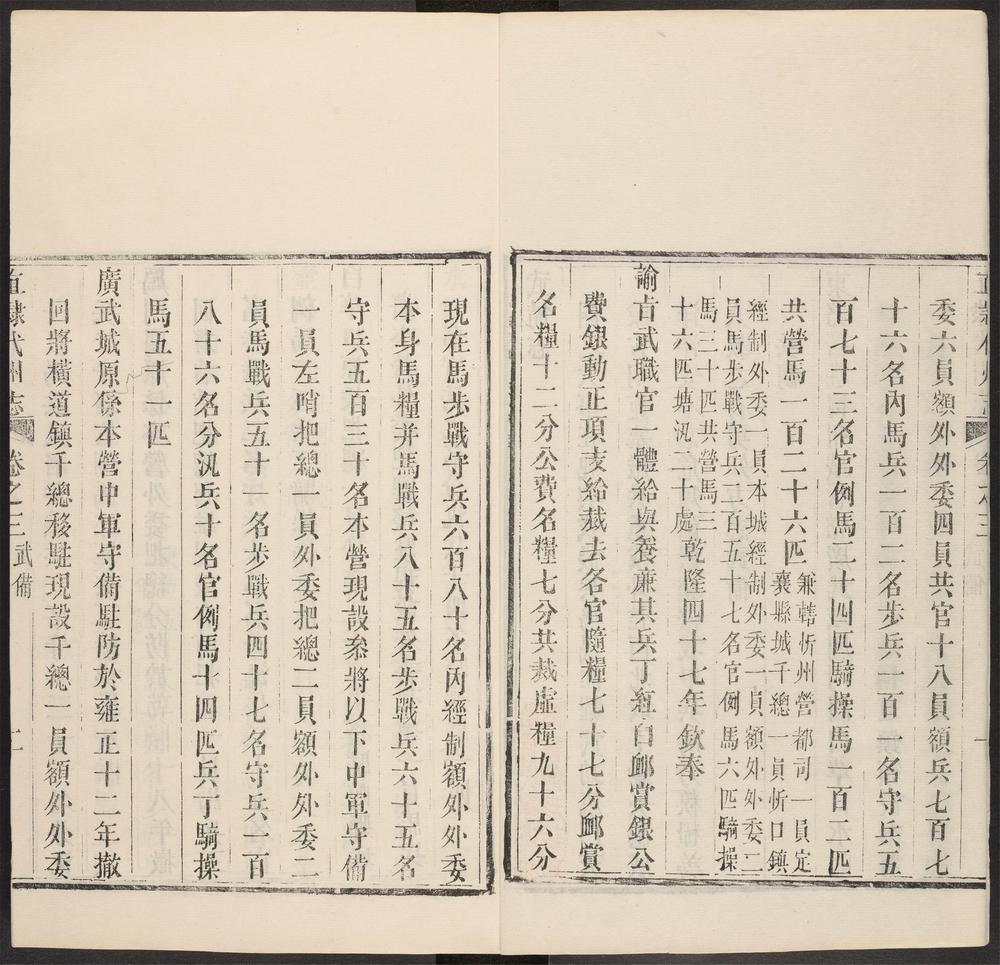 委六員額外外委四員共官十八員額兵七百七
十六名內馬兵一百二名步兵一百一名守兵五
百七十三名官例馬二十四匹騎操馬一百二匹
共營馬一百二十六匹
兼轄忻州營都司一員定
襄縣城千總一員忻口鎮
經制外委一員本城經制外委一員額外外委二
員馬步戰守兵二百五十七名官例馬六匹騎操
馬三十匹共營馬三
十六匹塘汛二十處
乾隆四十七年欽奉
諭吉武職官一體給與養廉其兵丁紅白䘏賞銀公
費銀動正項支給裁去各官隨糧七十七分䘏賞
名糧十二分公費名糧七分共裁虛糧九十六分
現在馬步戰守兵六百八十名內經制額外外委
本身馬糧幷馬戰兵八十五名步戰兵六十五名
守兵五百三十名本營現設叅將以下中軍守備
一員左哨把總一員外委把總二員額外外委二
員馬戰兵五十一名步戰兵四十七名守兵一百
八十六名分汛兵十名官例馬十四匹兵丁騎操
馬五十一匹
廣武城原係本營中軍守備駐防於雍正十二年撤
回將橫道鎮千總移駐現設千總一員額外外委
直隸代州志
卷之三
武備
二